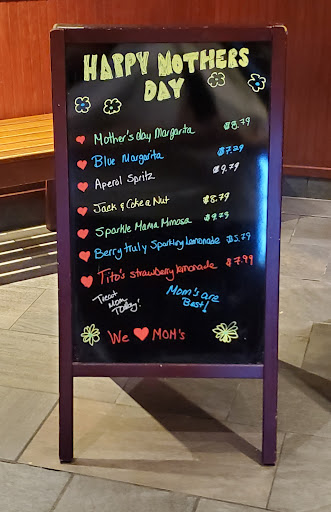 HAPPY MOTHERS
DAY
Mother's day Margarita $8.79
Blue Margarita $7.29
Aperol Spritz $9.79
Jack & Coke a Nut $8.79
Sparkle Mama Mimosa
Berry truly Sparkling lemonade $5.79
Tito's strawberry lemonade $7.99
Treat
Mom
Today!
Mom's are
Best!
We ❤ MOM's